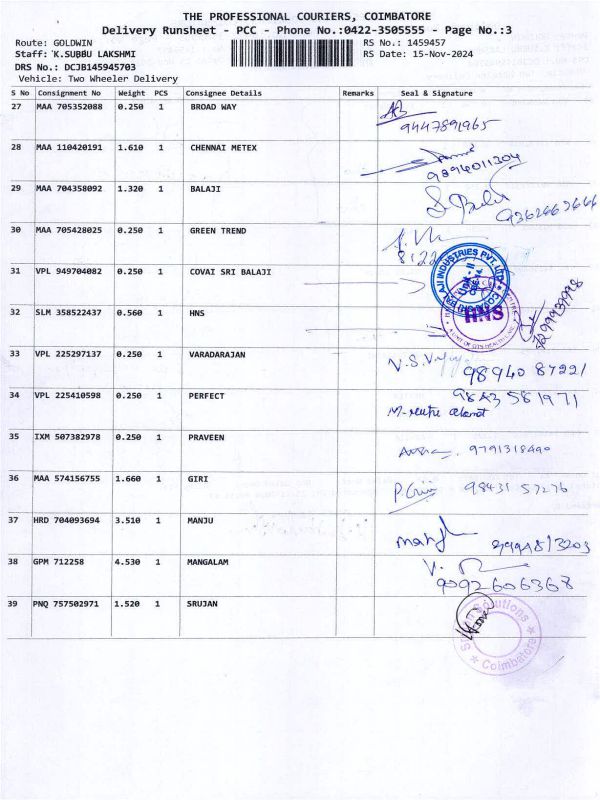 THE PROFESSIONAL COURIERS, COIMBATORE
Delivery Runsheet - PCC - Phone No.:0422-3505555 - Page No.:3
Route: GOLDWIN RS No.: 1459457
Staff: K.SUBBU LAKSHMI RS Date: 15-Nov-2024
DRS No.: DCJB145945703
Vehicle: Two Wheeler Delivery
S No Consignment No Weight PCS Consignee Details Remarks Seal & Signature
27 MAA 705352088 0.250 1 BROAD WAY
9447891965
28 MAA 110420191 1.610 1 CHENNAI METEX
9894011304
29 MAA 704358092 1.320 1 BALAJI
30 MAA 705428025 0.250 1 GREEN TREND
31 VPL 949704082 0.250 1 COVAI SRI BALAJI
BALAJI INDUSTRIES PVT. LTD.
32 SLM 358522437 0.560 1 HNS
HNS
33 VPL 225297137 0.250 1 VARADARAJAN
98940 87221
34 VPL 225410598 0.250 1 PERFECT
9843 581971
35 IXM 507382978 0.250 1 PRAVEEN
9791318490
36 MAA 574156755 1.660 1 GIRI
P. Giri 98431 57276
37 HRD 704093694 3.510 1 MANJU
38 GPM 712258 4.530 1 MANGALAM
9092606368
39 PNQ 757502971 1.520 1 SRUJAN
Solutions
Coimbatore